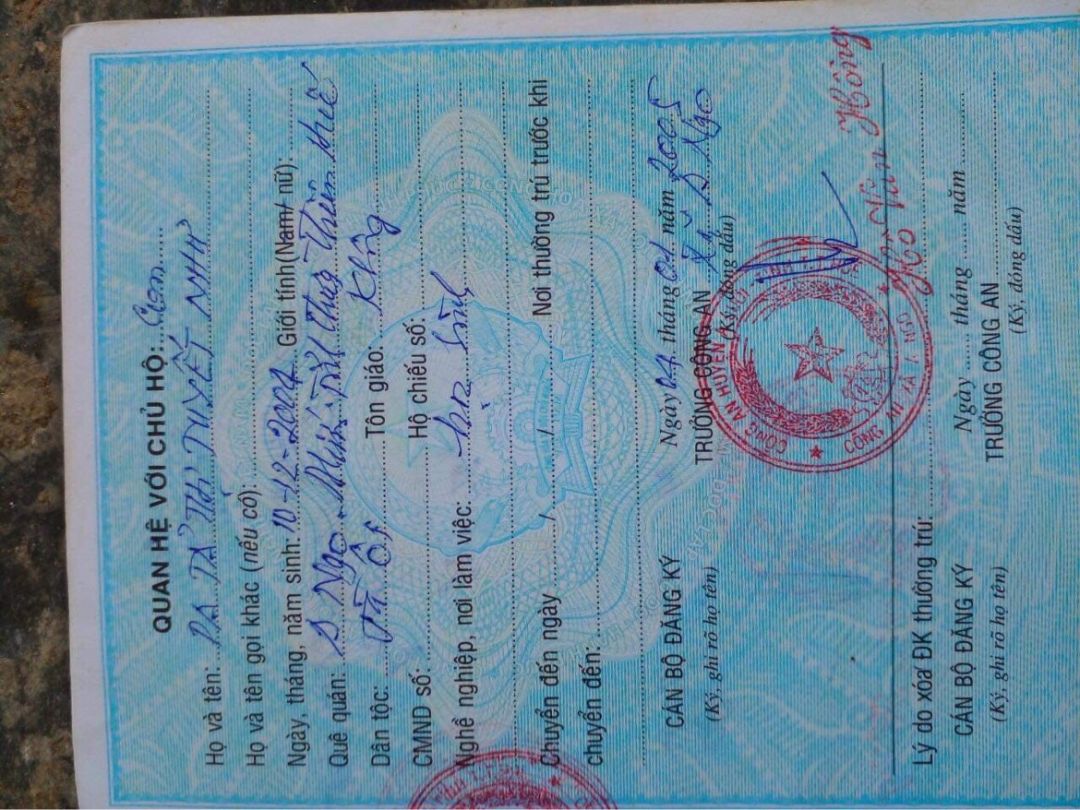 QUAN HỆ VỚI CHỦ HỘ: Con
Họ và tên: THỊ TUYẾT NHƯ
Họ và tên gọi khác (nếu có):
Ngày, tháng, năm sinh: 10-12-2004 Giới tính (Nam/ nữ):
Quê quán: A Ngo
Dân tộc: Tà Ôi Tôn giáo: Không
CMND số: Hộ chiếu số:
Nghề nghiệp, nơi làm việc:
Chuyển đến ngày / / Nơi thường trú trước khi
chuyển đến:
Ngày 04 tháng 01 năm 2005
CÁN BỘ ĐĂNG KÝ TRƯỞNG CÔNG AN Xã A Ngo
(Ký, ghi rõ họ tên) (Ký, đóng dấu)
CÔNG AN HUYỆN
CÔNG AN XÃ A NGO
Hồ Văn Hông
Lý do xóa ĐK thường trú:
Ngày tháng năm
CÁN BỘ ĐĂNG KÝ TRƯỞNG CÔNG AN
(Ký, ghi rõ họ tên) (Ký, đóng dấu)